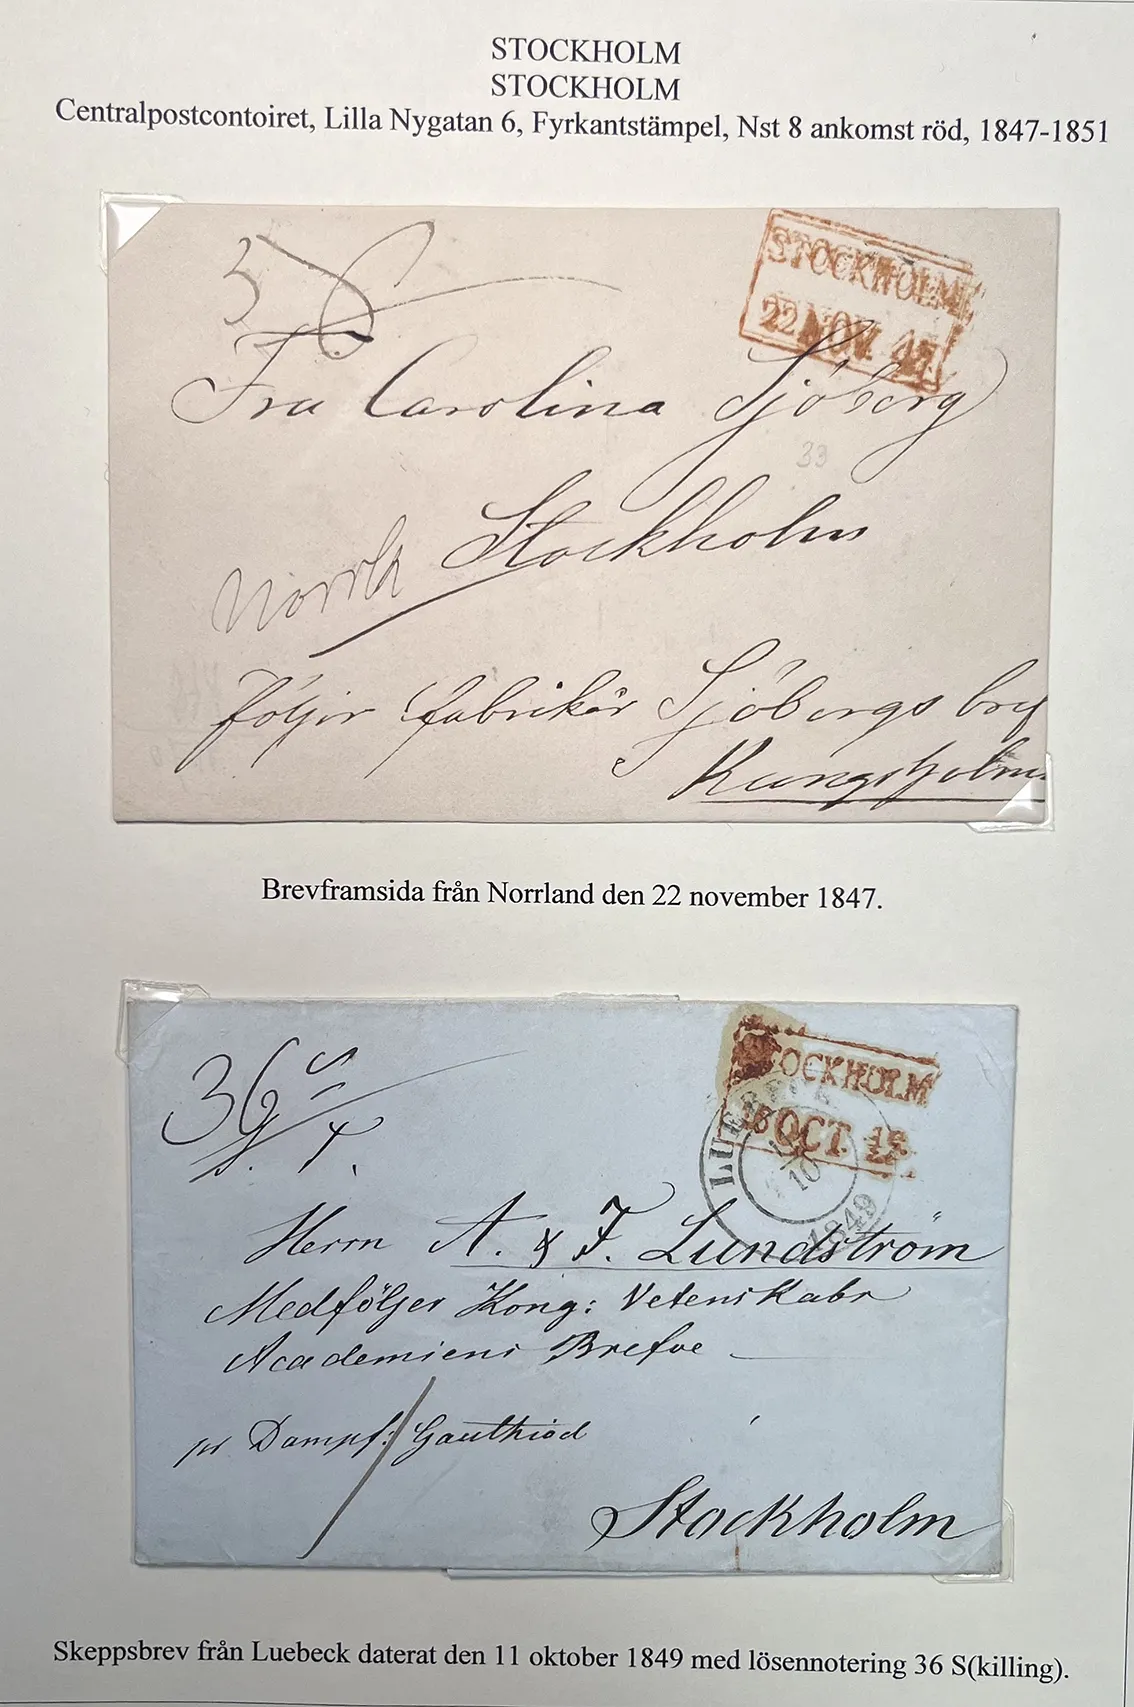 STOCKHOLM
STOCKHOLM
Centralpostcontoiret, Lilla Nygatan 6, Fyrkantstämpel, Nst 8 ankomst röd, 1847-1851
STOCKHOLM
22 NOV. 47
Fru Carolina Sjöberg
33
Stockholm
Norrl
följer fabrikör Sjöbergs bref
Kungsholm
Brevframsida från Norrland den 22 november 1847.
36 S
STOCKHOLM
16 OCT.
LUEBECK
10
1849
Herrn A. & F. Lundström
Medföljer Kong: Vetenskabs
Academiens Brefve
pr Dampf: Gauthiod
Stockholm
Skeppsbrev från Luebeck daterat den 11 oktober 1849 med lösennotering 36 S(killing).